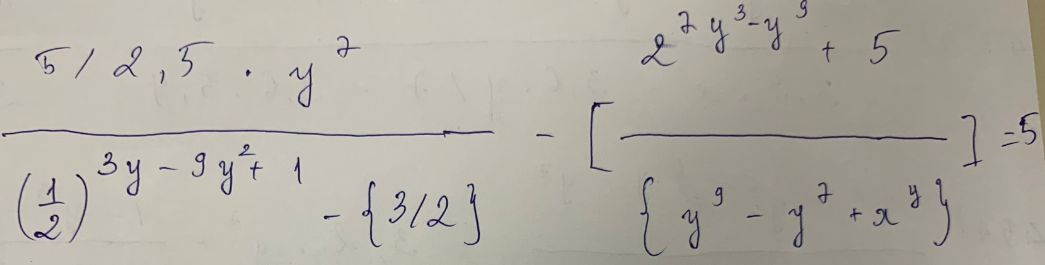 5/2,5 · y^7 / ((1/2)^(3y - 9y^2 + 1) - {3/2}) - [(2^(7y^3 - y^9) + 5) / {y^9 - y^7 + x^y}] = 5